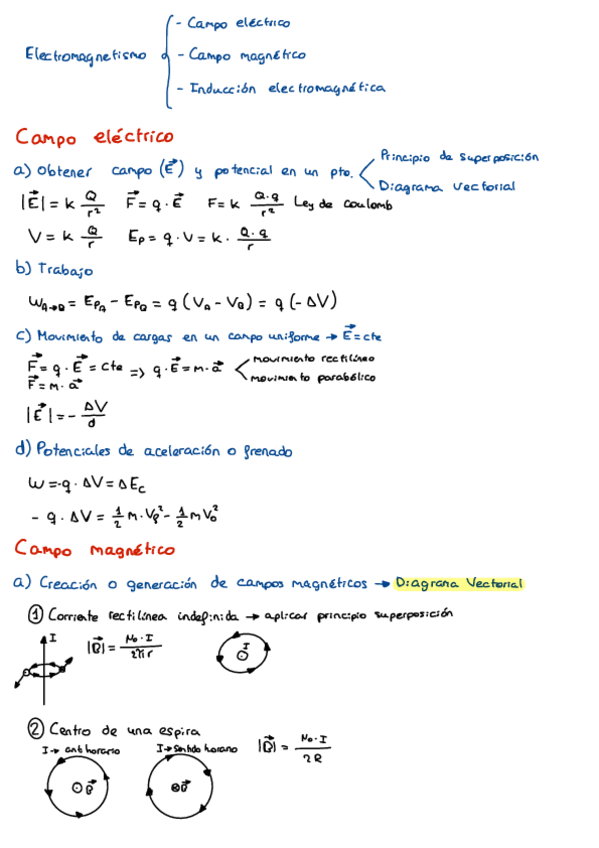 - Campo eléctrico
Electromagnetismo - Campo magnético
- Inducción electromagnética
Campo eléctrico
a) Obtener campo (E⃗) y potencial en un pto. Principio de superposición
Diagrama Vectorial
|E⃗| = k Q/r² F⃗ = q · E⃗ F = k Q·q/r² Ley de coulomb
V = k Q/r Ep = q · V = k · Q·q/r
b) Trabajo
W_A→B = Ep_A - Ep_B = q (V_A - V_B) = q (-ΔV)
c) Movimiento de cargas en un campo uniforme → E⃗ = cte
F⃗ = q · E⃗ = cte => q · E⃗ = m · a⃗ movimiento rectilíneo
F⃗ = m · a⃗ movimiento parabólico
|E⃗| = - ΔV/d
d) Potenciales de aceleración o frenado
W = -q · ΔV = ΔEc
- q · ΔV = 1/2 m · Vf² - 1/2 m V₀²
Campo magnético
a) Creación o generación de campos magnéticos → Diagrama Vectorial
① Corriente rectilínea indefinida → aplicar principio superposición
I |B⃗| = μ₀ · I / 2πr I
② Centro de una espira
I → antihorario I → Sentido horario |B⃗| = μ₀ · I / 2R
B⃗ B⃗